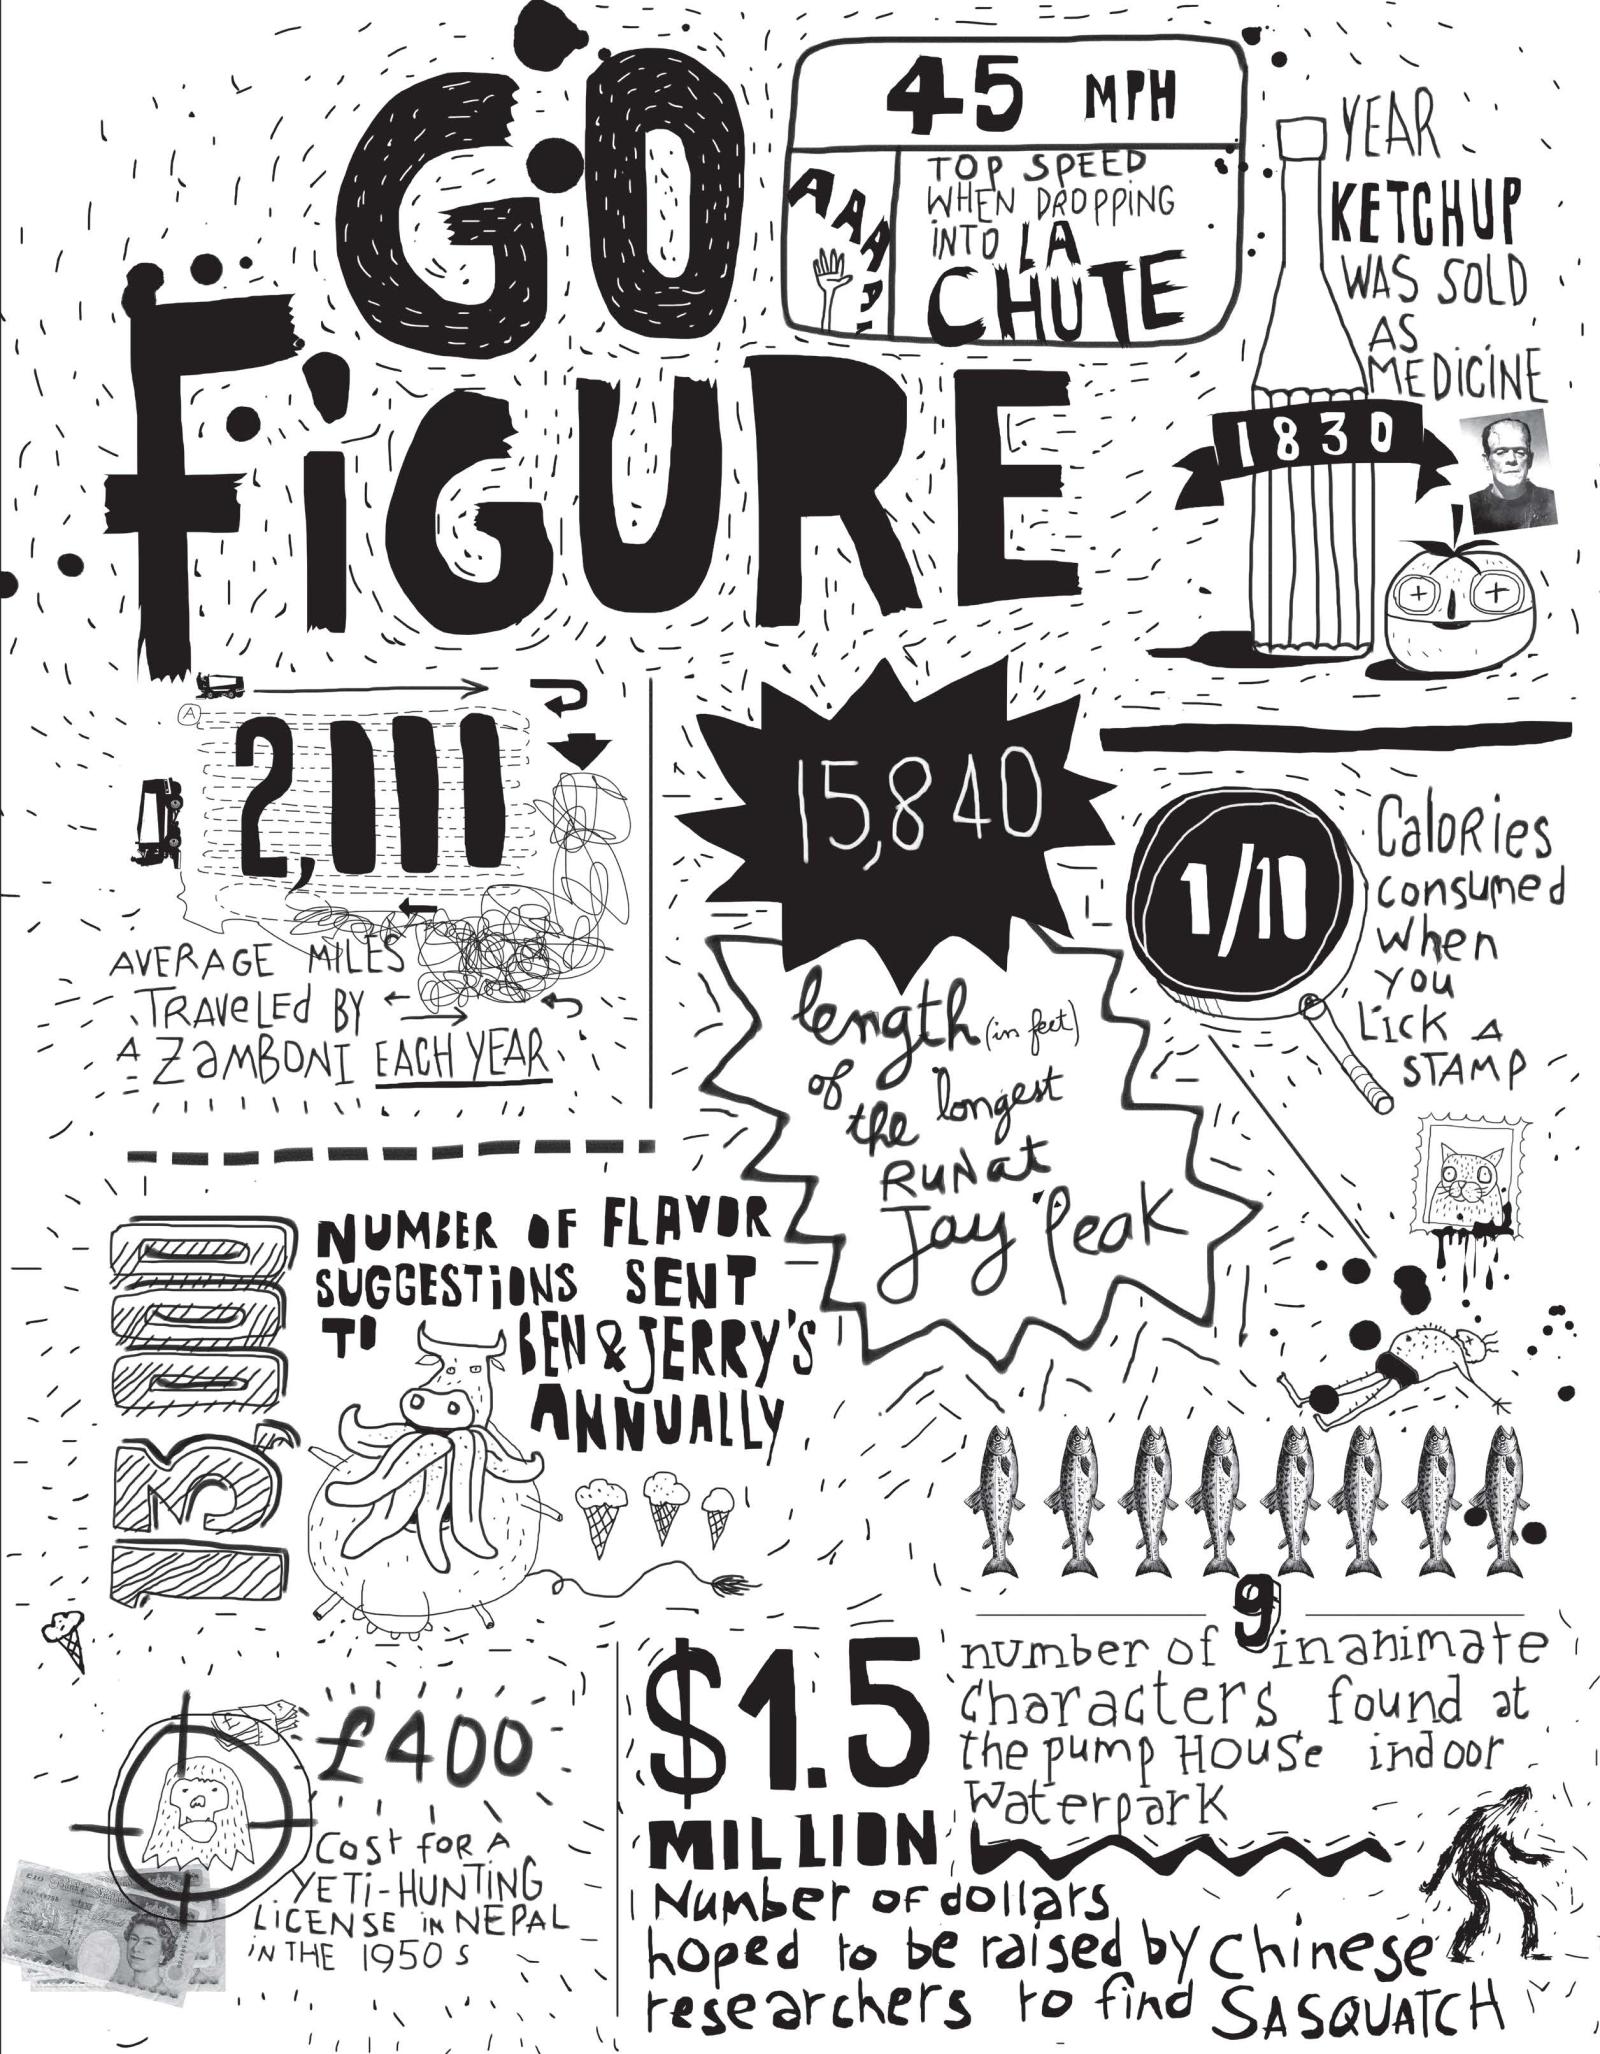 GO
FiGURE
45 MPH
AAAAA!
TOP SPEED
WHEN DROPPING
iNTO LA
CHUTE
YEAR
KETCHUP
WAS SOLD
AS
MEDICINE
1830
A
2,111
AVERAGE MILES
TRAVELED BY
A ZAMBONI EACH YEAR
15,840
length (in feet)
of
the longest
RUN at
Jay Peak
1/11
Calories
consumed
when
you
Lick A
STAMP
13,000
NUMBER OF FLAVOR
SUGGESTiONS SENT
TO BEN & JERRY'S
ANNUALLY
9
number of inanimate
Characters found at
the pump House indoor
Waterpark
£400
Cost for A
YETi-HUNTING
LICENSE iN NEPAL
iN THE 1950s
$1.5
MILLION
Number of dollars
hoped to be raised by Chinese
researchers to find SASQUATCH